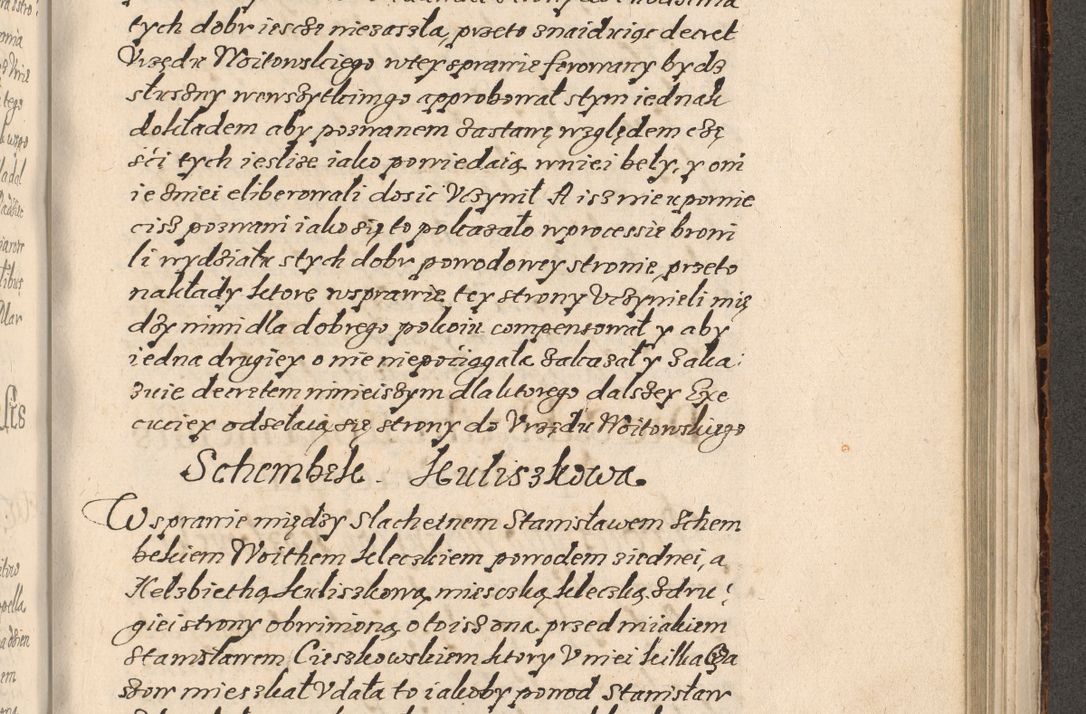 tych dobr iescze niezaszła, przeto znaidziąc decret
Vrzędu Woitowskiego wtey sprawie ferowany bydz
słuszny wewszytkimgo approbował stym iednak
dokładem aby poznanem zastawę względem czę
ści tych ieslize iako powiedaią wniei beły, y oni
ie zniei eliberowali dosić Vczynił A isz nieupornie
cisz poznani iakosię to pokazało wprocessie broni
li wydziału stych dobr powodowey stronie, przeto
nakłady ktore wsprawie tey strony Vczynieli mię
dzy nimi dla dobrego pokoiu compensował y aby
iedna drugiey o nie niepociągała zakazał y zaka:
zuie decretem ninieiszym dla ktorego dalszey Exe
cuciey odsełaią się strony do Vrzędu Woitowskiego
Schembek. Kuliszkowa.
W sprawie między slachetnem Stanisławem Schem
bekiem Woithem kleczkiem powodem ziednei, a
Helzbiethą Kuliszkową miesczką kleczką zdru:
giei strony obwinioną oto isz ona przed niiakiem
Stanisławem Cieszkowskiem ktory V niei kilka cza
sow mieszkał Vdała to iakoby powod Stanisław